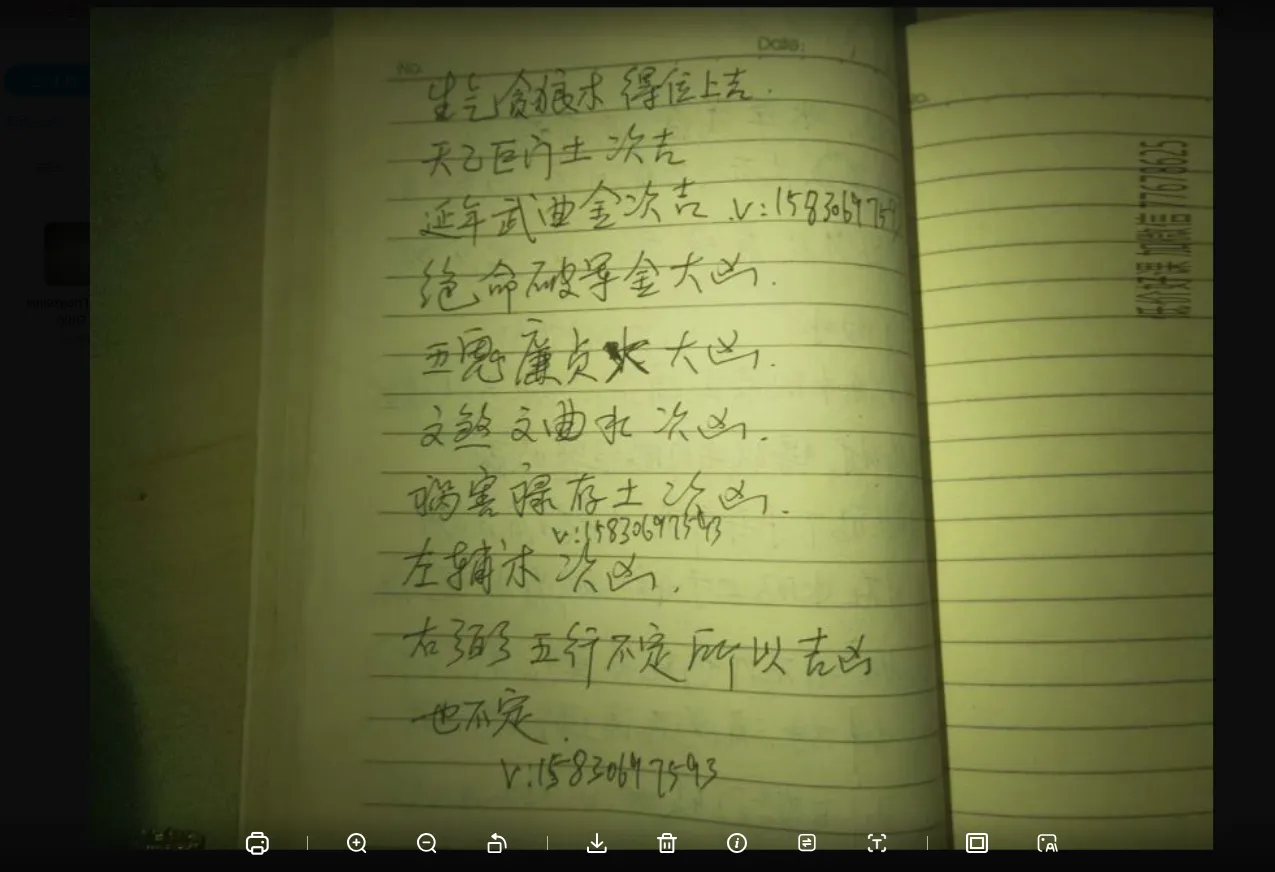 No.
Date:
生气贪狼木 得位上吉.
天乙巨门土 次吉
延年武曲金次吉 v:1583069759
绝命破军金大凶.
五鬼廉贞火 大凶.
文煞文曲水 次凶.
祸害禄存土 次凶.
v:15830697593
左辅木 次凶.
右弼 五行不定 所以吉凶
也不定.
v:15830697593
低价好课 加微信 77678625